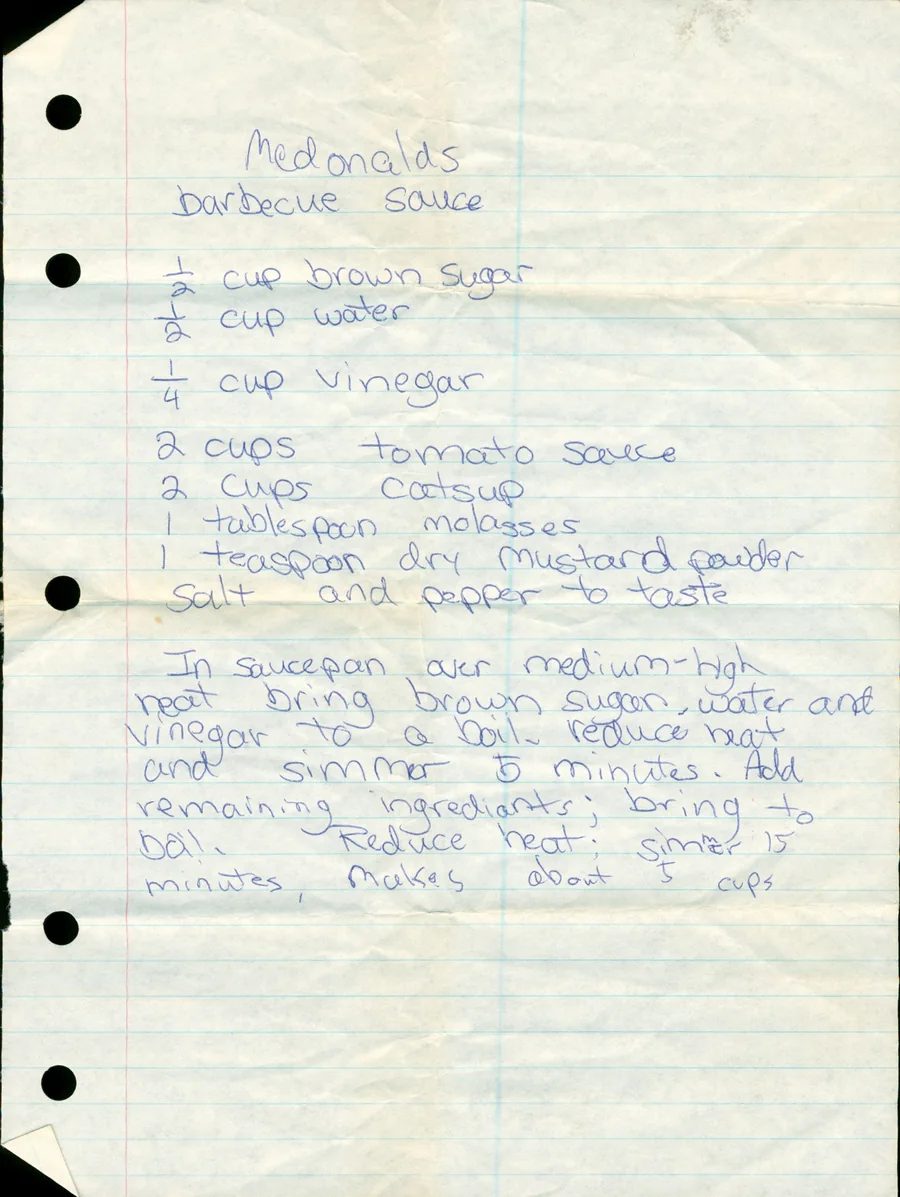 Mcdonalds
barbecue sauce
1/2 cup brown sugar
1/2 cup water
1/4 cup vinegar
2 cups tomato sauce
2 cups catsup
1 tablespoon molasses
1 teaspoon dry mustard powder
salt and pepper to taste
In saucepan over medium-high
heat bring brown sugar, water and
vinegar to a boil. reduce heat
and simmer 5 minutes. Add
remaining ingrediants; bring to
boil. Reduce heat; simmer 15
minutes, Makes about 5 cups